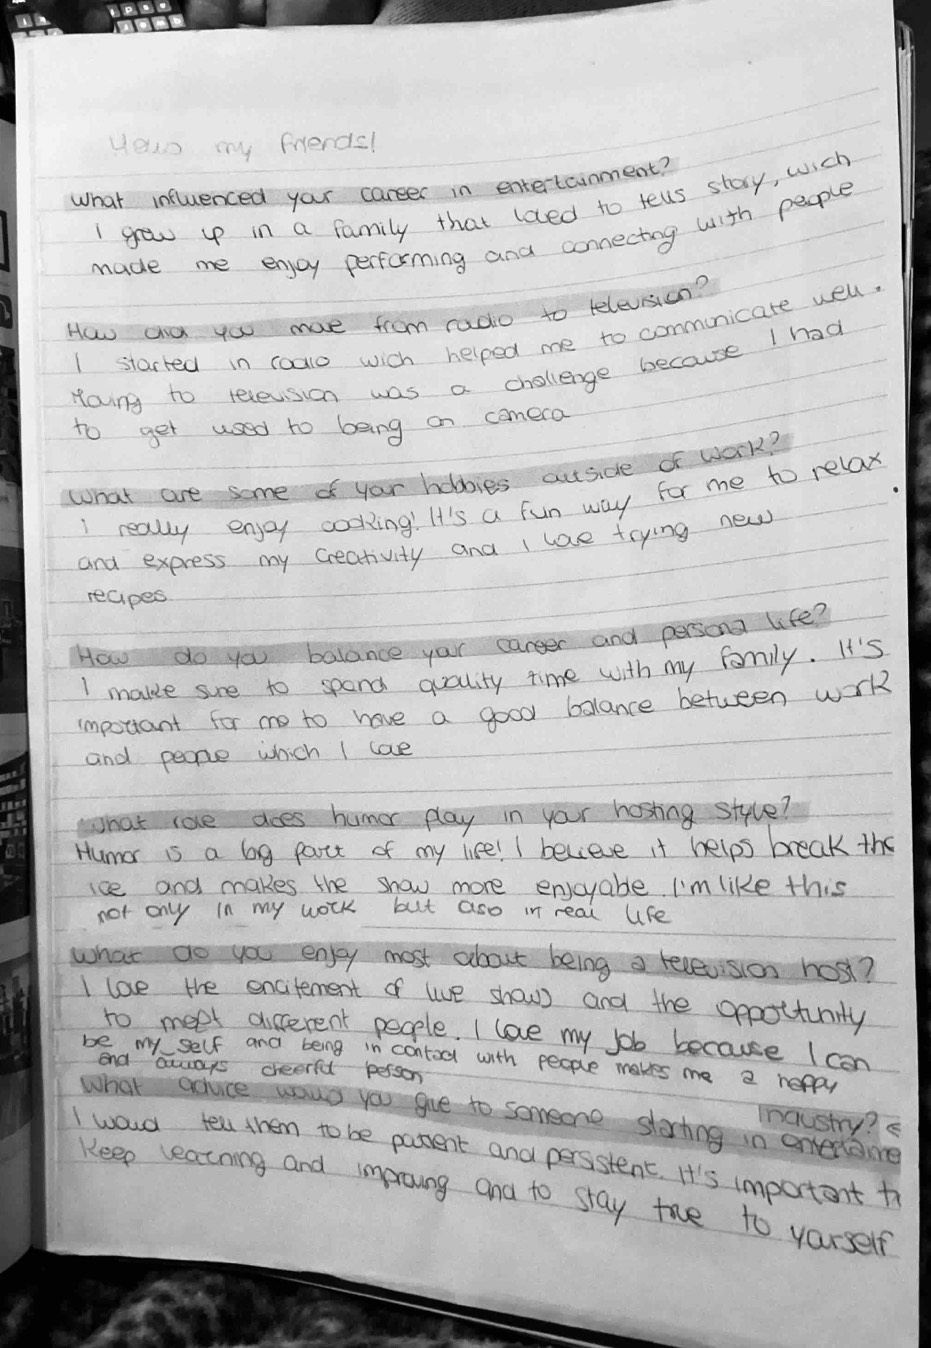 Hello my friends!
What influenced your career in entertainment?
I grow up in a family that loved to tells story, wich
made me enjoy performing and connecting with people
How did you move from radio to television?
I started in radio wich helped me to communicate well.
Moving to television was a challenge because I had
to get used to being on camera
What are some of your hobbies outside of work?
I really enjoy cooking! It's a fun way for me to relax
and express my creativity and I love trying new
recipes
How do you balance your career and personal life?
I make sure to spend quality time with my family. It's
important for me to have a good balance between work
and people which I love
What role does humor play in your hosting style?
Humor is a big part of my life! I believe it helps break the
ice and makes the show more enjoyable. I'm like this
not only in my work but also in real life
What do you enjoy most about being a television host?
I love the encitement of live shows and the opportunity
to meet different people. I love my job because I can
be my self and being in contact with people makes me a happy
and always cheerful person
What advice would you give to someone starting in entertainme
industry?
I would tell them to be patient and persistent. It's important t
keep learning and improving and to stay true to yourself